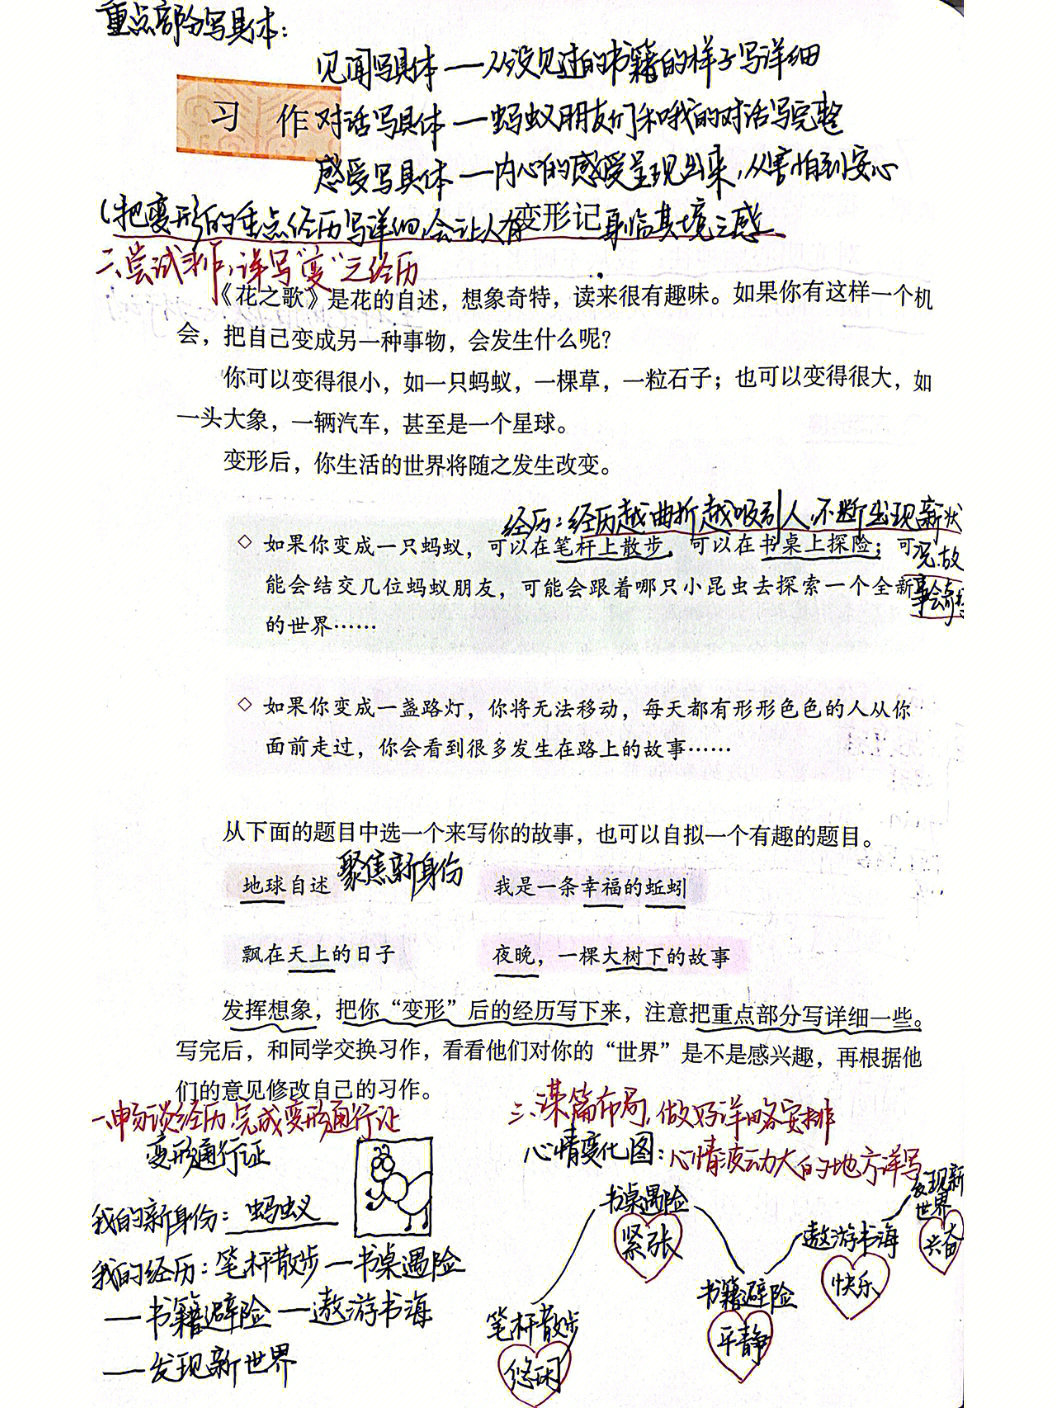 重点部份写具体：
见闻写具体—从没见过的书籍的样子写详细
习 作
对话写具体—蚂蚁朋友们和我的对话写完整
感受写具体—内心的感受呈现出来,从害怕到安心
(把变形的重点经历写详细,会让人有身临其境之感、
变形记
二、尝试习作,详写“变”之经历
《花之歌》是花的自述，想象奇特，读来很有趣味。如果你有这样一个机
会，把自己变成另一种事物，会发生什么呢？
你可以变得很小，如一只蚂蚁，一棵草，一粒石子；也可以变得很大，如
一头大象，一辆汽车，甚至是一个星球。
变形后，你生活的世界将随之发生改变。
经历：经历越曲折越吸引人,不断出现新状
况,故
◇ 如果你变成一只蚂蚁，可以在笔杆上散步，可以在书桌上探险；可
能会结交几位蚂蚁朋友，可能会跟着哪只小昆虫去探索一个全新
的世界……
◇ 如果你变成一盏路灯，你将无法移动，每天都有形形色色的人从你
面前走过，你会看到很多发生在路上的故事……
从下面的题目中选一个来写你的故事，也可以自拟一个有趣的题目。
聚焦新身份
地球自述 我是一条幸福的蚯蚓
飘在天上的日子 夜晚，一棵大树下的故事
发挥想象，把你“变形”后的经历写下来，注意把重点部分写详细一些。
写完后，和同学交换习作，看看他们对你的“世界”是不是感兴趣，再根据他
们的意见修改自己的习作。
一、畅谈经历,完成变形通行证
变形通行证
我的新身份：蚂蚁
我的经历：笔杆散步—书桌遇险
—书籍避险—遨游书海
—发现新世界
三、谋篇布局,做好详略安排
心情变化图：心情波动大的地方详写
笔杆散步
悠闲
书桌遇险
紧张
书籍避险
平静
遨游书海
快乐
发现新
世界
兴奋